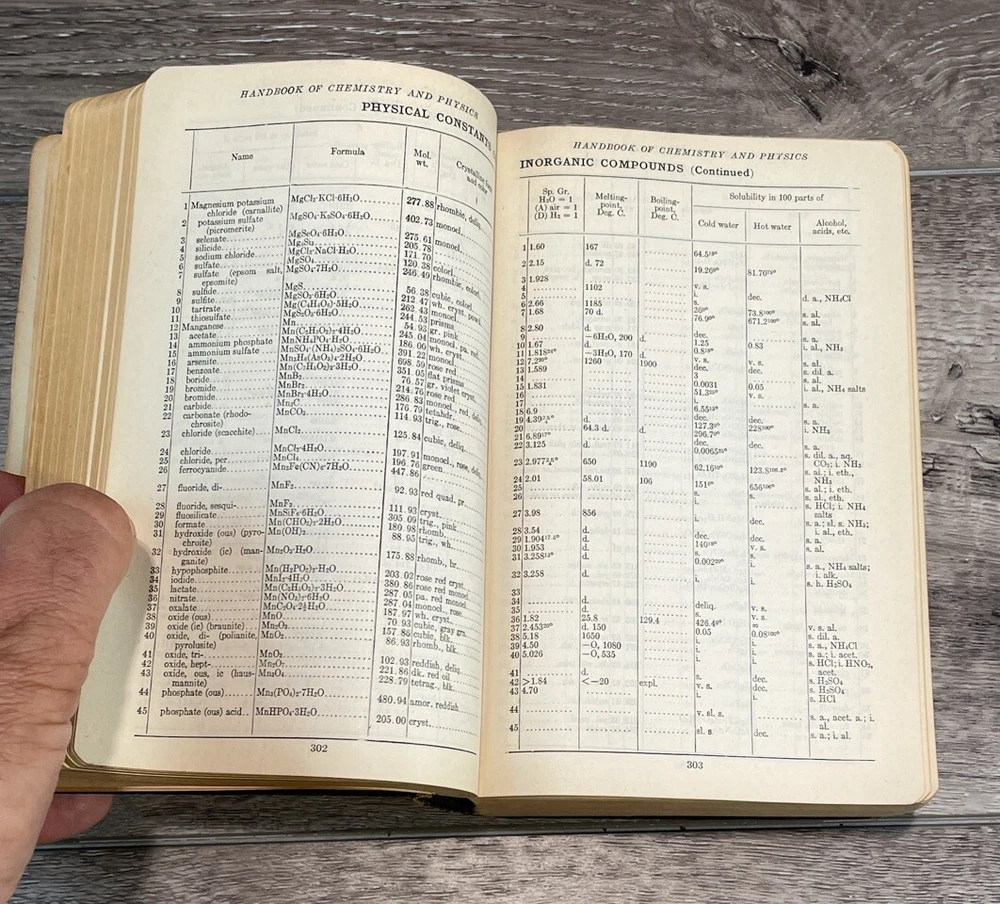 HANDBOOK OF CHEMISTRY AND PHYSICS
PHYSICAL CONSTANTS
Name Formula Mol. wt.
1 Magnesium potassium chloride (carnallite) MgCl₂·KCl·6H₂O 277.88 rhombic, deliq.
2 potassium sulfate (picromerite) MgSO₄·K₂SO₄·6H₂O 402.73 monocl.
3 selenate MgSeO₄·6H₂O 275.61 monocl.
4 silicide Mg₂Si
5 sodium chloride MgCl₂·NaCl·H₂O 171.70
6 sulfate MgSO₄ 120.38 colorl.
7 sulfate (epsom salt, epsomite) MgSO₄·7H₂O 246.49
8 sulfide MgS 56.38
9 sulfite MgSO₃·6H₂O 212.47
10 tartrate 262.43
11 thiosulfate MgS₂O₃·6H₂O 244.53 prisms
12 Manganese Mn 54.93
13 acetate Mn(C₂H₃O₂)₂·4H₂O 245.04
14 ammonium phosphate MnNH₄PO₄·H₂O 186.00
15 ammonium sulfate MnSO₄·(NH₄)₂SO₄·6H₂O 391.22
16 arsenite Mn₃H₆(AsO₃)₄·2H₂O 698.59 rose red
17 benzoate 351.05 flat prisms
18 boride MnB₂ 76.57
19 bromide MnBr₂ 214.76 rose red
20 bromide MnBr₂·4H₂O 286.83
21 carbide Mn₃C 176.79 tetahdr.
22 carbonate (rhodochrosite) MnCO₃ 114.93 trig., rose
23 chloride (scacchite) MnCl₂ 125.84 cubic, deliq.
24 chloride MnCl₂·4H₂O 197.91
25 chloride, per- MnCl₄ 196.76 green
26 ferrocyanide Mn₂Fe(CN)₆·7H₂O 447.86
27 fluoride, di- MnF₂ 92.93 red quad. pr.
28 fluoride, sesqui- MnF₃ 111.93 cryst.
29 fluosilicate MnSiF₆·6H₂O 305.09 trig., pink
30 formate Mn(CHO₂)₂·2H₂O 180.98 rhomb.
31 hydroxide (ous) (pyrochroite) Mn(OH)₂ 88.95 trig., wh.
32 hydroxide (ic) (manganite) Mn₂O₃·H₂O 175.88 rhomb., br.
33 hypophosphite Mn(H₂PO₂)₂·H₂O 203.02 rose red cryst.
34 iodide MnI₂·4H₂O 380.86
35 lactate Mn(C₃H₅O₃)₂·3H₂O 287.05
36 nitrate Mn(NO₃)₂·6H₂O 287.04 monocl., rose
37 oxalate MnC₂O₄·2½H₂O 187.97 wh. cryst.
38 oxide (ous) MnO 70.93
39 oxide (ic) (braunite) Mn₂O₃ 157.86 cubic, blk.
40 oxide, di- (polianite, pyrolusite) MnO₂ 86.93 rhomb., blk.
41 oxide, tri- MnO₃ 102.93 reddish, deliq.
42 oxide, hept- Mn₂O₇ 221.86 dk. red oil
43 oxide, ous, ic (hausmannite) Mn₃O₄ 228.79 tetrag., blk.
44 phosphate (ous) Mn₃(PO₄)₂·7H₂O 480.94 amor. reddish
45 phosphate (ous) acid MnHPO₄·3H₂O 205.00 cryst.
302
HANDBOOK OF CHEMISTRY AND PHYSICS
INORGANIC COMPOUNDS (Continued)
Sp. Gr. H₂O = 1 (A) air = 1 (D) H₂ = 1 Melting-point, Deg. C. Boiling-point, Deg. C. Solubility in 100 parts of
Cold water Hot water Alcohol, acids, etc.
1 1.60 167 64.5¹⁹°
2 2.15 d. 72 19.26⁰° 81.70⁷⁵°
3 1.928
4 1102 v. s.
5 i. dec. d. a., NH₄Cl
6 2.66 1185 26⁰° 73.8¹⁰⁰° s. al.
7 1.68 70 d. 76.9⁰° 671.2¹⁰⁰° s. al.
8 2.80 d. dec. s. a.
9 −6H₂O, 200 d. 1.25 0.83 i. al., NH₃
10 1.67 d.
11 1.818 −3H₂O, 170 d. v. s. s. al.
12 7.2 1260 1900 dec. dec. s. dil. a.
13 1.589 3 s. al.
14 0.0031 0.05 i. al., NH₄ salts
15 1.831 51.3²⁵° v. s.
16 i.
17 6.55¹⁵° s. a.
18 6.9 dec. dec.
19 4.39 d. 127.3⁰° 228¹⁰⁰° s. a.
20 64.3 d. d. 296.7⁰° i. NH₃
21 6.89¹⁷° dec. dec. s. a.
22 3.125 d. 0.0065²⁵° s. dil. a., aq. CO₂; i. NH₃
23 2.977 650 1190 62.16¹⁰° 123.8 s. al.; i. eth., NH₃
24 2.01 58.01 106 151⁸° 656¹⁰⁰° s. al.; i. eth.
25 s. s. al., eth.
26 i. s. HCl; i. NH₄ salts
27 3.98 856 s. a.; sl. s. NH₃; i. al., eth.
28 3.54 d. dec. s. a.
29 1.904¹⁷·⁵° d. 140¹⁸° v. s. s. al.
30 1.953 d. s.
31 3.258¹³° d. 0.002²⁰° s. a., NH₄ salts; i. alk.
32 3.258 d. i. i. s. h. H₂SO₄
33
34 d. deliq. v. s.
35 d. s.
36 1.82 25.8 129.4 426.4⁰° ∞ v. s. al.
37 2.453²⁰° d. 150 0.05 0.08¹⁰⁰° s. dil. a.
38 5.18 1650 i. i. s. a., NH₄Cl
39 4.50 −O, 1080 i. i. s. a.; i. acet.
40 5.026 −O, 535 i. i. s. HCl; i. HNO₃, acet.
41 d. s. H₂SO₄
42 >1.84 <−20 expl. v. s. dec. s. H₂SO₄
43 4.70 i. i. s. HCl
44 v. sl. s. s. a., acet. a.; i. al.
45 sl. s. dec. s. a.; i. al.
303